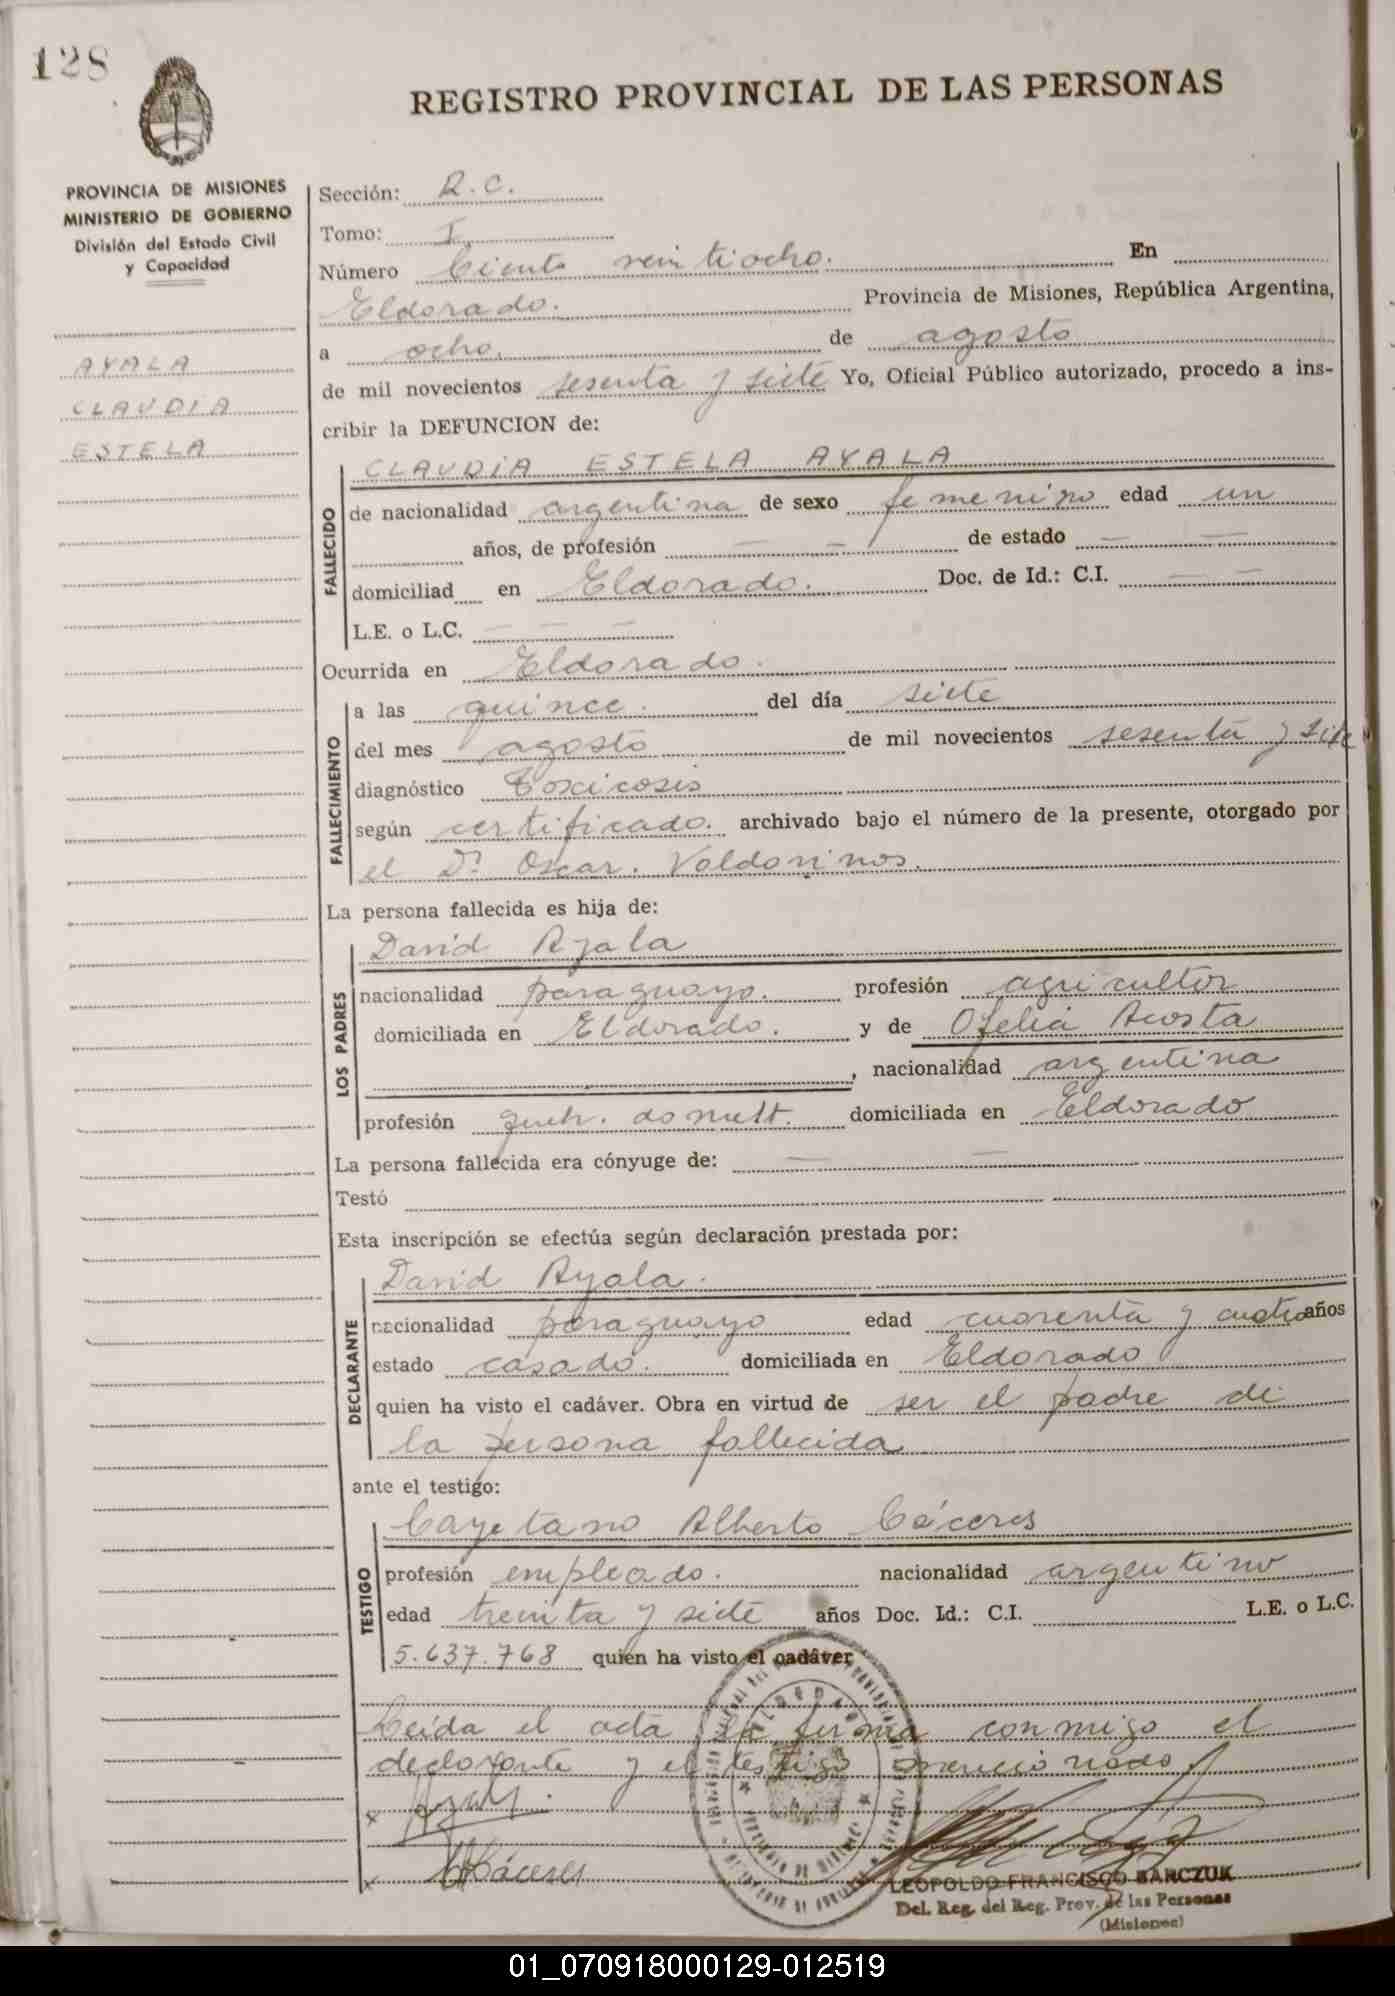 128
REGISTRO PROVINCIAL DE LAS PERSONAS
PROVINCIA DE MISIONES
MINISTERIO DE GOBIERNO
División del Estado Civil
y Capacidad
AYALA
CLAUDIA
ESTELA
Sección: R.C.
Tomo: I
Número Ciento veintiocho. En
Eldorado. Provincia de Misiones, República Argentina,
a ocho. de agosto
de mil novecientos sesenta y siete Yo, Oficial Público autorizado, procedo a ins-
cribir la DEFUNCION de:
FALLECIDO
CLAUDIA ESTELA AYALA
de nacionalidad argentina de sexo femenino edad un
años, de profesión — — de estado — —
domiciliad en Eldorado. Doc. de Id.: C.I. — —
L.E. o L.C. — — —
Ocurrida en Eldorado.
FALLECIMIENTO
a las quince. del día siete
del mes agosto de mil novecientos sesenta y siete
diagnóstico Toxicosis
según certificado. archivado bajo el número de la presente, otorgado por
el Dr. Oscar. Valdovinos.
La persona fallecida es hija de:
LOS PADRES
David Ayala
nacionalidad paraguayo. profesión agricultor
domiciliada en Eldorado. y de Ofelia Acosta
, nacionalidad argentina
profesión queh. domest. domiciliada en Eldorado
La persona fallecida era cónyuge de: — —
Testó
Esta inscripción se efectúa según declaración prestada por:
DECLARANTE
David Ayala.
nacionalidad paraguayo edad cuarenta y cuatro años
estado casado. domiciliada en Eldorado
quien ha visto el cadáver. Obra en virtud de ser el padre de
la persona fallecida
ante el testigo:
TESTIGO
Cayetano Alberto Cáceres
profesión empleado. nacionalidad argentino
edad treinta y siete años Doc. Id.: C.I. L.E. o L.C.
5.637.768 quien ha visto el cadáver
Leída el acta la firma conmigo el
declarante y el testigo mencionado
x Ayala.
x Cáceres
ELDORADO
PROVINCIA DE MISIONES
LEOPOLDO FRANCISCO BARCZUK
Del. Reg. del Reg. Prov. de las Personas
(Misiones)
01_070918000129-012519